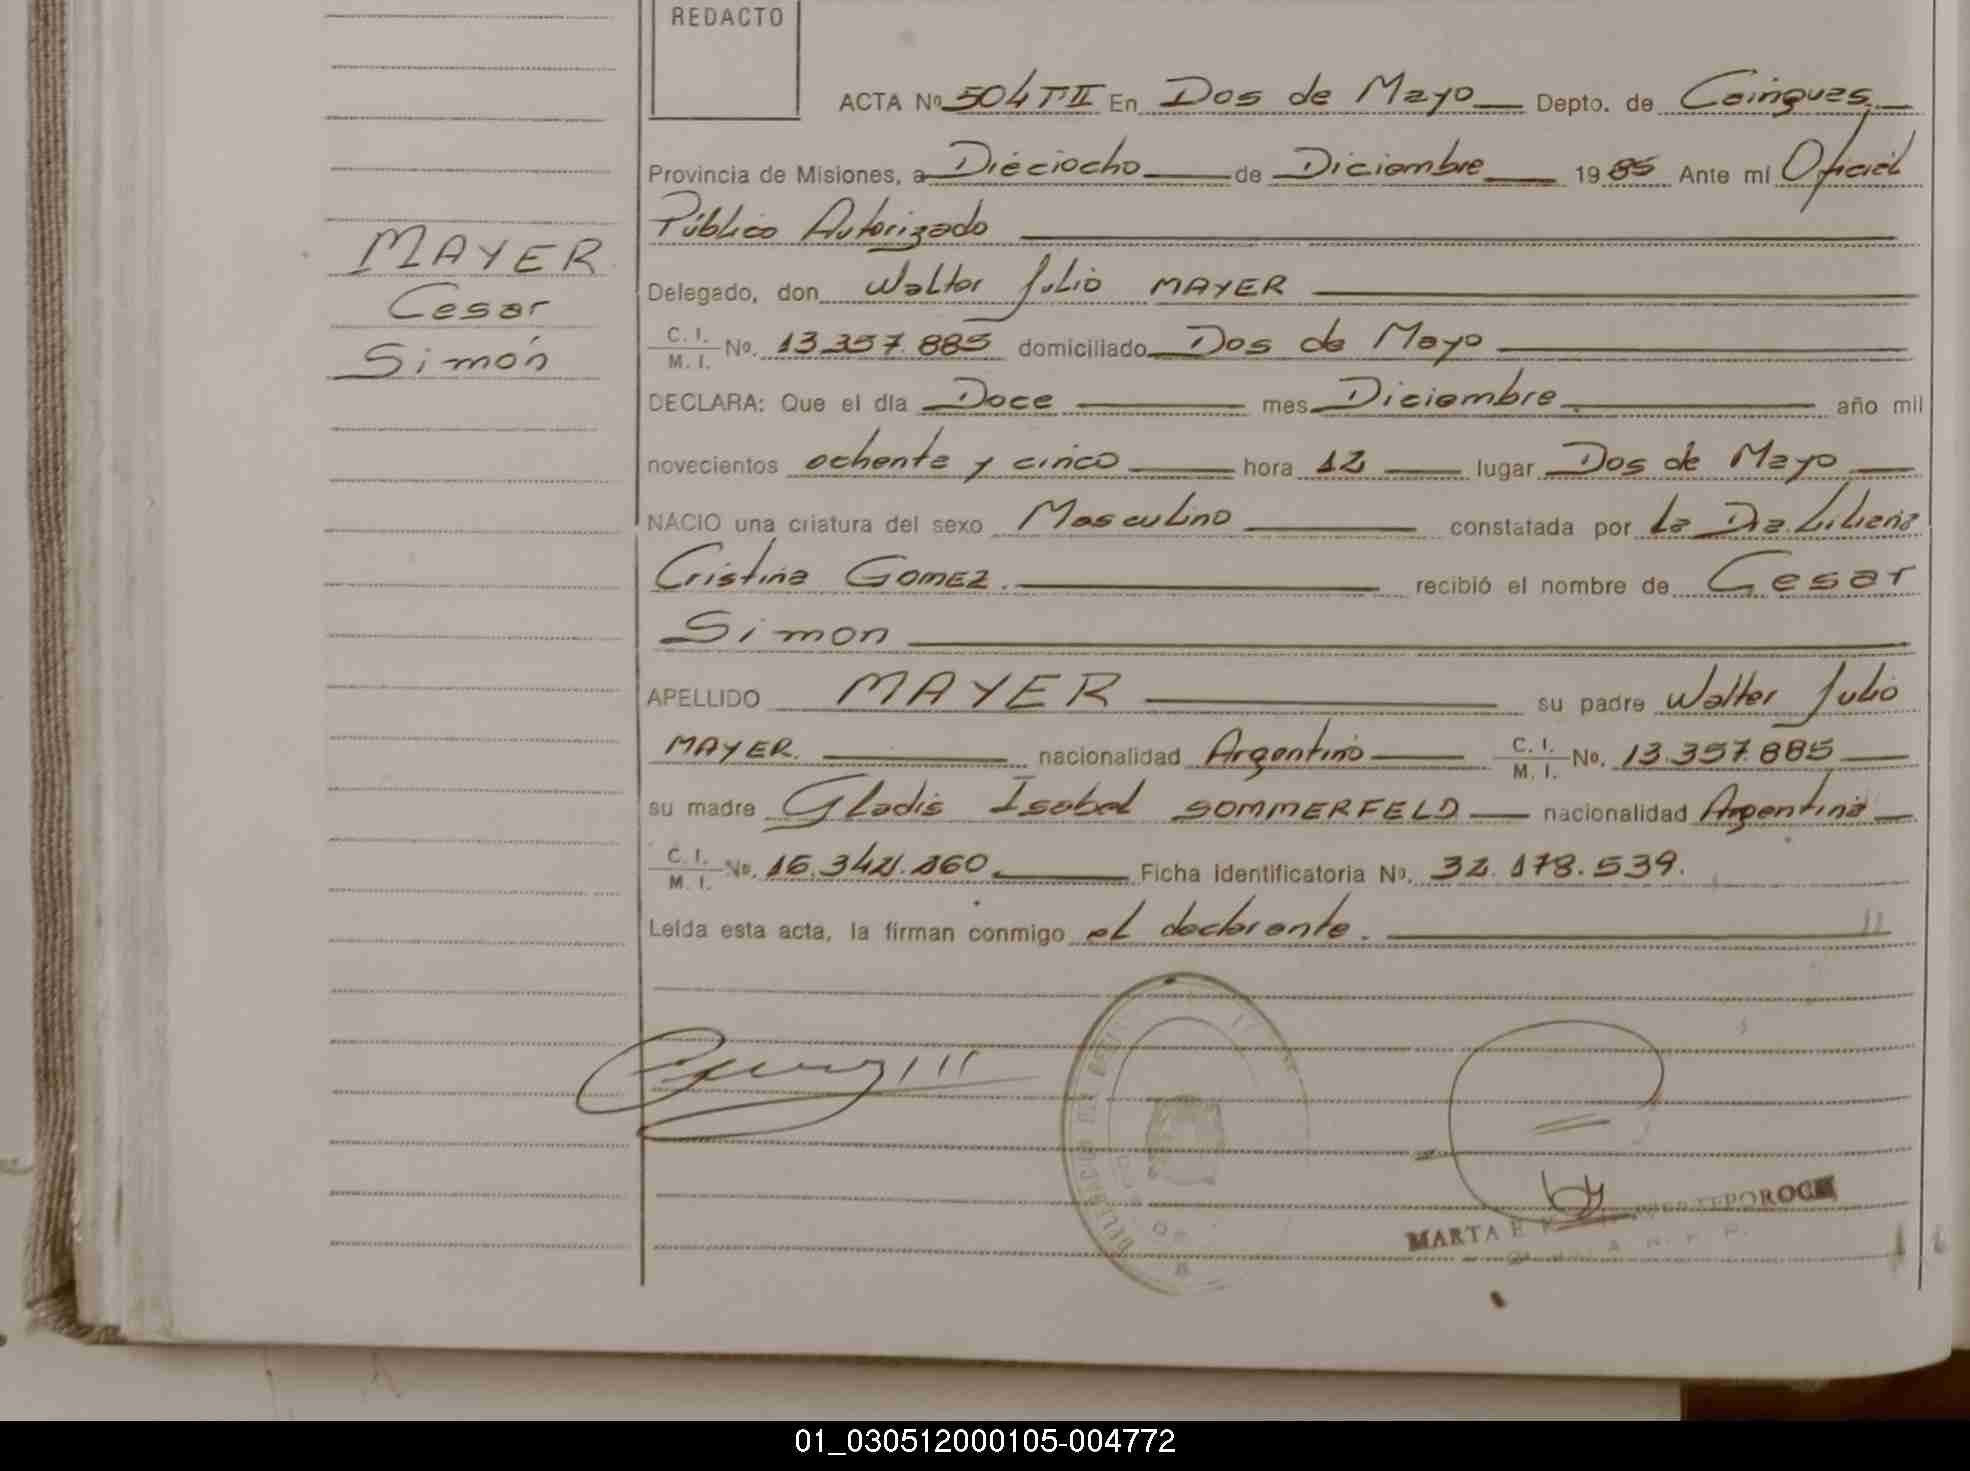 REDACTO
ACTA Nº 504 TºII En Dos de Mayo Depto. de Cainguas
Provincia de Misiones, a Dieciocho de Diciembre 1985 Ante mí Oficial
Público Autorizado
MAYER
Cesar
Simón
Delegado, don Walter Julio MAYER
C. I. / M. I. Nº. 13.357.885 domiciliado Dos de Mayo
DECLARA: Que el día Doce mes Diciembre año mil
novecientos ochenta y cinco hora 12 lugar Dos de Mayo
NACIO una criatura del sexo Masculino constatada por La Dra. Liliana
Cristina GOMEZ. recibió el nombre de Cesar
Simon
APELLIDO MAYER su padre Walter Julio
MAYER. nacionalidad Argentino C. I. / M. I. Nº. 13.357.885
su madre Gladis Isabel SOMMERFELD nacionalidad Argentina
C. I. / M. I. Nº. Ficha identificatoria Nº. 32.178.539.
Leída esta acta, la firman conmigo el declarante.
MARTA E
01_030512000105-004772